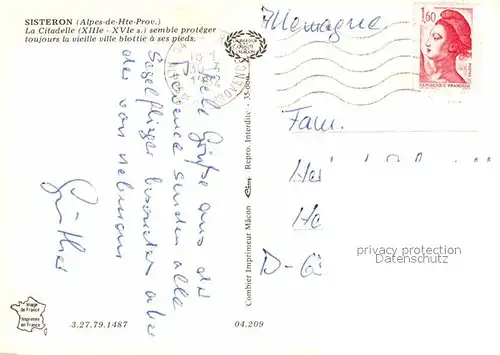 SISTERON (Alpes-de-Hte-Prov.)
La Citadelle (XIIIe - XVIe s.) semble protéger
toujours la vieille ville blottie à ses pieds.
Viele Grüße aus der
Provence senden alle
Segelflieger besonders aber
der von nebenan
Günther
Combier Imprimeur Mâcon
Repro. Interdite - 35.000
Image
de France
Imprimée
en France
3.27.79.1487
04.209
Allemagne
1,60
REPUBLIQUE FRANÇAISE
Fam.
D-
privacy protection
Datenschutz